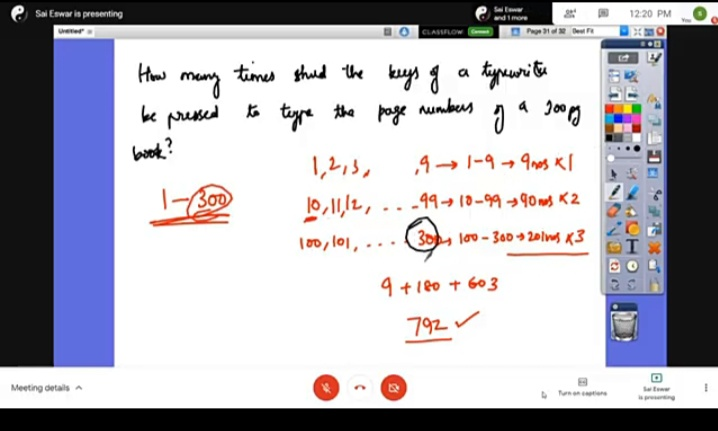 Sai Eswar is presenting
Sai Eswar
and 1 more
12:20 PM
You
Untitled*
CLASSFLOW Connect
Page 31 of 32
Best Fit
How many times shud the keys of a typewriter
be pressed to type the page numbers of a 300 pg
book?
1, 2, 3, , 9 → 1-9 → 9 nos x 1
1 - 300
10, 11, 12, . . . . 99 → 10-99 → 90 nos x 2
100, 101, . . . . . 300 → 100-300 → 201 nos x 3
9 + 180 + 603
792 ✓
Meeting details
Turn on captions
Sai Eswar
is presenting